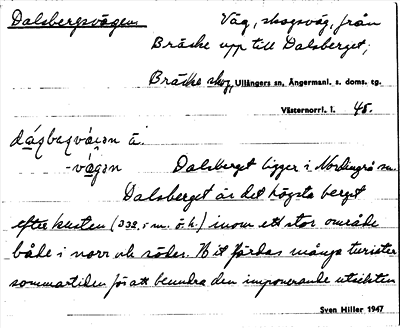 Dalsbergsvägen Väg, skogsväg, från
Bräcke upp till Dalsberget;
Bräcke skog, Ullångers sn, Ångermanl. s. doms. tg.
Västernorrl. l. 45.
Dalsberget ligger i Nordingrå sn.
Dalsberget är det högsta berget
efter kusten (332 m. ö. h.) inom ett stor område
både i norr och söder. Hit färdas många turister
sommartiden för att beundra den imponerande utsikten
Sven Hiller 1947